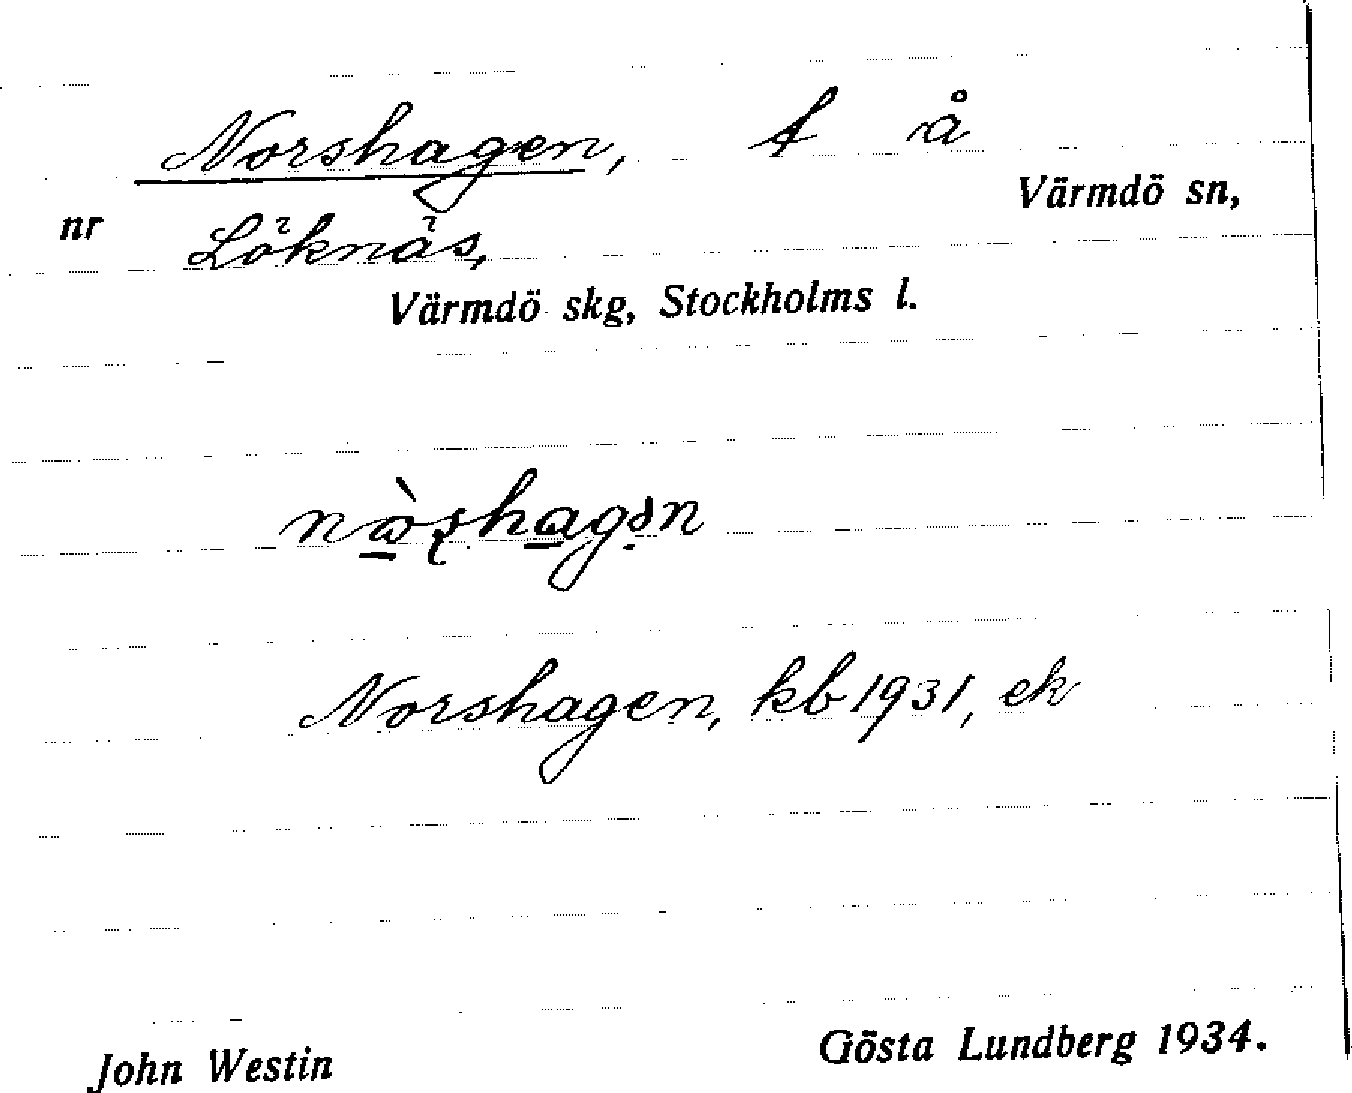 Norshagen, t å
Värmdö sn,
nr Löknäs,
Värmdö skg, Stockholms l.
Norshagen, kb 1931, ek
John Westin Gösta Lundberg 1934.